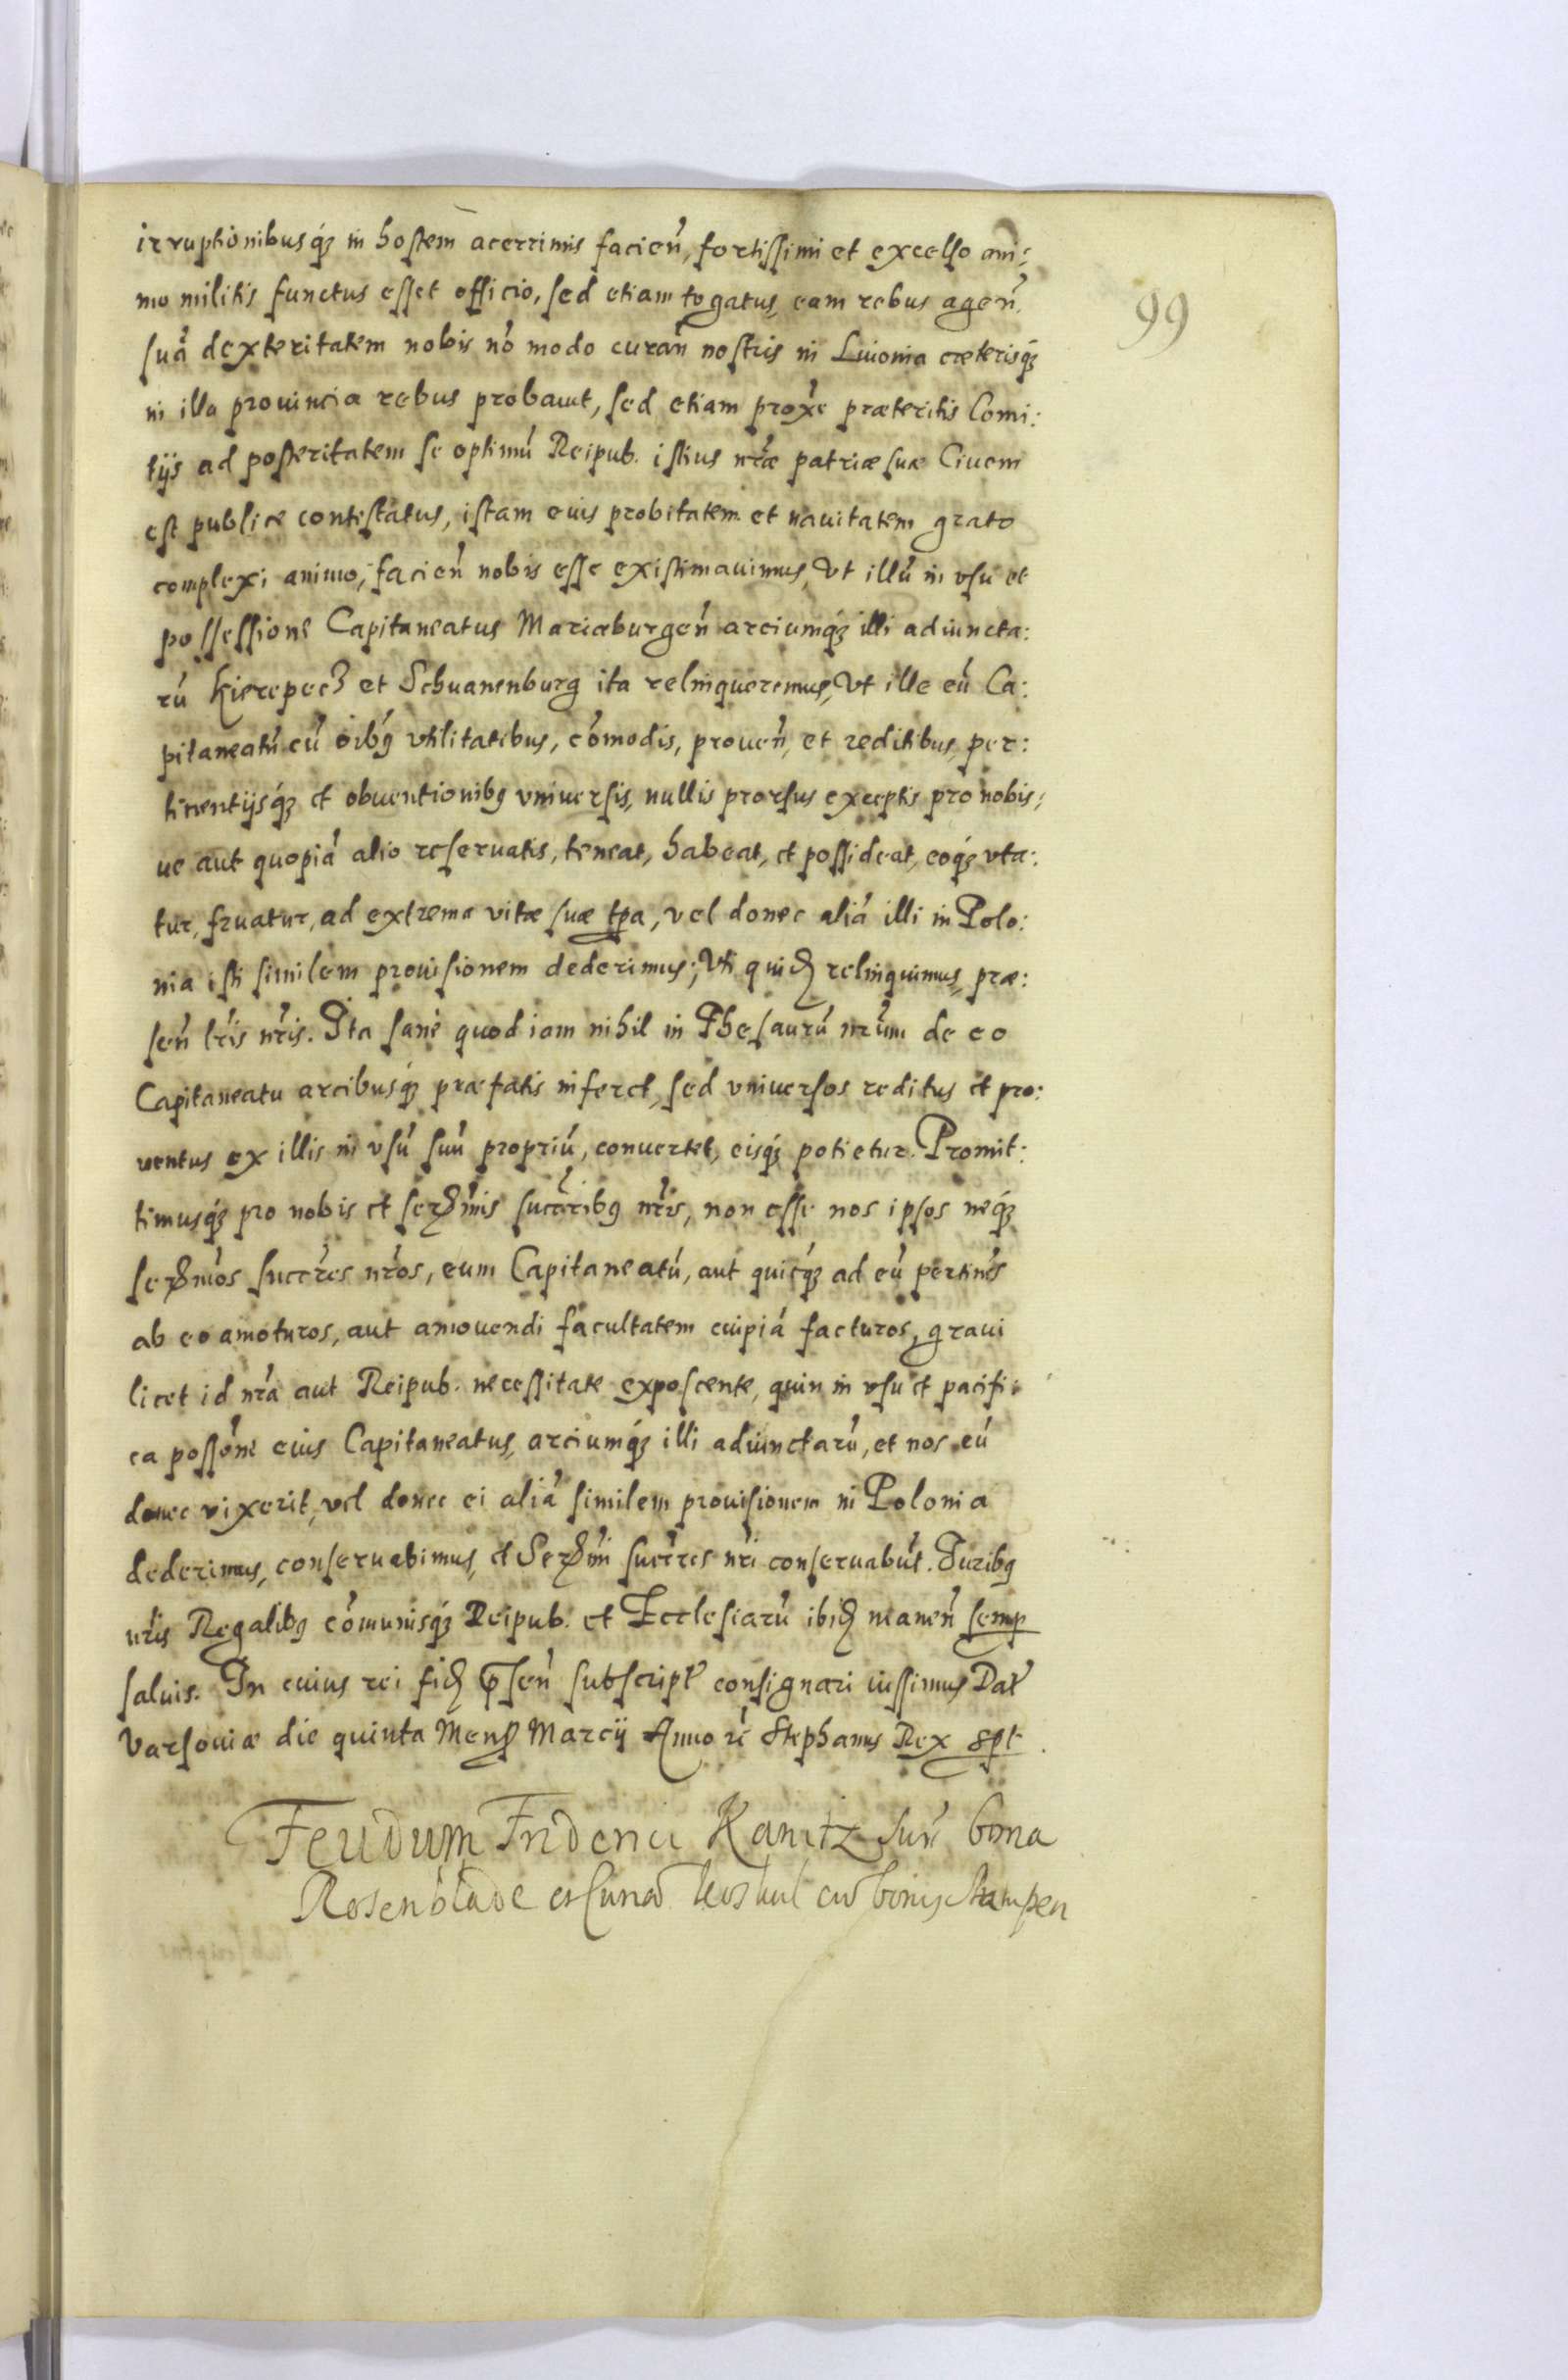 irruptionibusq́ꝫ in hostem acerrimis facień, fortissimi et excelso ani:
mo militis functus esset officio, sed etiam togatus, eam rebus ageń
suá dexteritatem nobis nó modo curań nostris in Liuonia cæterisq́ꝫ
in illa prouincia rebus probauit, sed etiam proxé præteritis Comi:
tijs ad posteritatem se optimú Reipub. istius nr̃æ patriæ suæ Ciuem
est publice contestatus, istam eius probitatem et nauitatem grato
complexi animo, facień nobis esse existimauimus, Vt illú in vsu et
possessione Capitaneatus Mariæburgeń arciumq́ꝫ illi adiuncta:
rú Kierepecz et Schuanenburg ita relinqueremus, Vt ille eú Ca:
pitaneatú cú oibꝯ vtilitatibus, cómodis, proueń, et reditibus, per:
tinentijsq́ꝫ et obuentionibꝯ vniuersis, nullis prorsus exceptis pro nobis:
ue aut quopiá alio reseruatis, teneat, habeat, et possideat, eoq́ꝫ vta:
tur, fruatur, ad extrema vitæ suæ tp̃a, vel donec aliá illi in Polo:
nia isti similem prouisionem dederimus; Vti quidꝫ relinquimus, præ:
seń lr̃is nr̃is. Ita sané quod iam nihil in Thesaurú nr̃um de eo
Capitaneatu arcibusq́ꝫ præfatis inferet, sed vniuersos reditus et pro:
uentus ex illis in vsú suú propriú, conuertet, eisq́ꝫ potietur. Promit:
timusq́ꝫ pro nobis et serꝫmis succr̃ibꝯ nr̃is, non esse nos ipsos neq́ꝫ
serꝫmos succr̃es nr̃os, eum Capitaneatú, aut quicq́ꝫ ad eú pertineńs
ab eo amoturos, aut amouendi facultatem cuipiá facturos, graui
licet id nr̃a aut Reipub. necessitate exposcente, quin in vsu et pacifi:
ca possōne eius Capitaneatus, arciumq́ꝫ illi adiunctarú, et nos eú
donec vixerit, vel donec ei aliá similem prouisionem in Polonia
dederimus, conseruabimus, et Serꝫmi succr̃es nr̃i conseruabút. Iuribꝯ
nr̃is Regalibꝯ cómunisq́ꝫ Reipub. et Ecclesiarú ibidꝫ maneń semp
saluis. In cuius rei fidꝫ p̃seń subscript̃ consignari iussimus Dat̃
Varsouiæ die quinta Mens̃ Marcij Anno rč Stephanus Rex spt.
Feudum Friderici Kanitz sup̃ bona
Rosenblade et Cunad cũ bonis
99